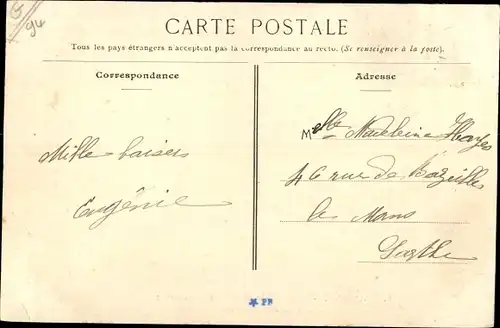 94
CARTE POSTALE
Tous les pays étrangers n'acceptent pas la correspondance au recto. (Se renseigner à la poste).
Correspondance
Adresse
Melle Madeleine
Mille baisers
46 rue de Bazeilles
Eugénie
Le Mans
Sarthe
PN